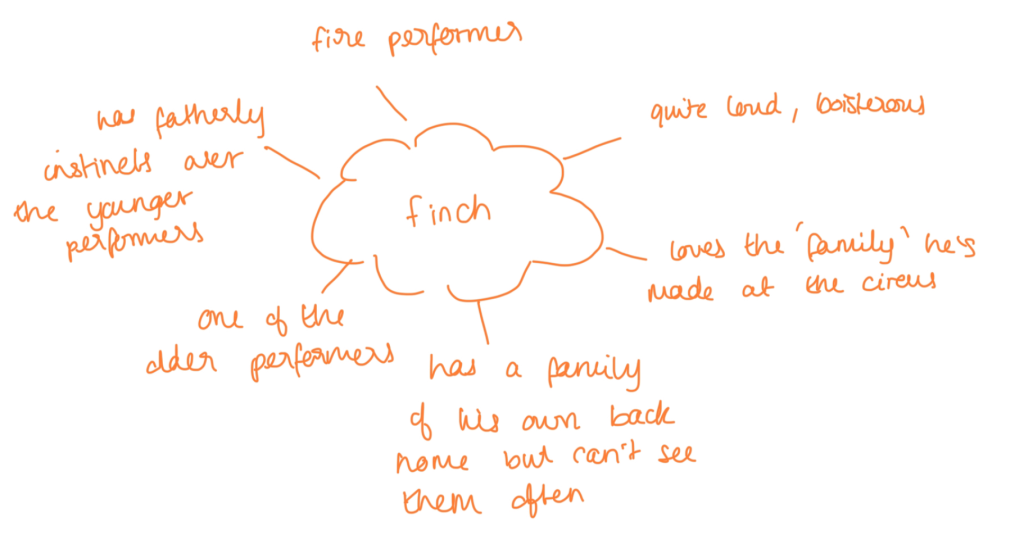 fire performer
quite loud, boisterous
has fatherly
instincts over
the younger
performers
finch
loves the 'family' he's
made at the circus
one of the
older performers
has a family
of his own back
home but can't see
them often